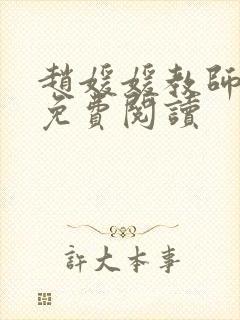 趙媛媛教師
免費閱讀
許大本事